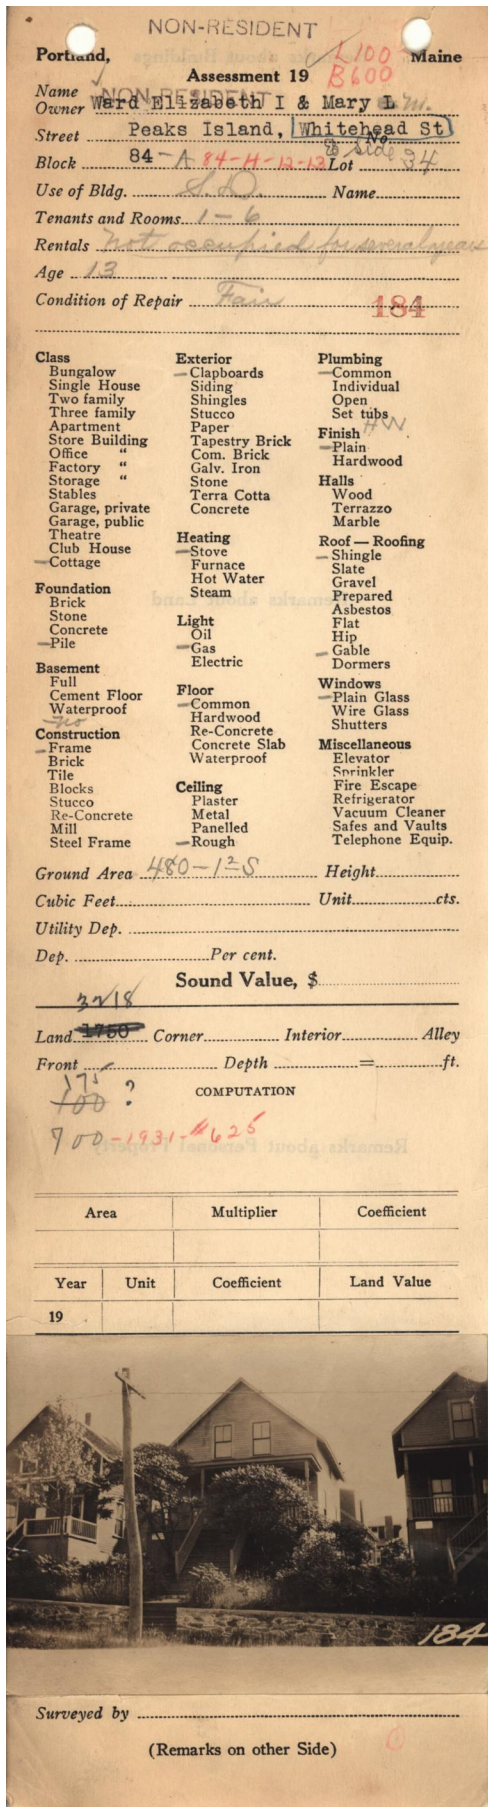 NON-RESIDENT
Portland, L100 Maine
Assessment 19 B600
NON-RESIDENT
Name
Owner Ward Elizabeth I & Mary L
Street Peaks Island, Whitehead St No.
Block 84-A 84-H-12-13 Lot E side 34
Use of Bldg. S.D. Name
Tenants and Rooms 1-6
Rentals Not occupied for several years
Age 13
Condition of Repair Fair 184
Class
Bungalow
Single House
Two family
Three family
Apartment
Store Building
Office "
Factory "
Storage "
Stables
Garage, private
Garage, public
Theatre
Club House
Cottage
Foundation
Brick
Stone
Concrete
Pile
Basement
Full
Cement Floor
Waterproof
No
Construction
Frame
Brick
Tile
Blocks
Stucco
Re-Concrete
Mill
Steel Frame
Exterior
Clapboards
Siding
Shingles
Stucco
Paper
Tapestry Brick
Com. Brick
Galv. Iron
Stone
Terra Cotta
Concrete
Heating
Stove
Furnace
Hot Water
Steam
Light
Oil
Gas
Electric
Floor
Common
Hardwood
Re-Concrete
Concrete Slab
Waterproof
Ceiling
Plaster
Metal
Panelled
Rough
Plumbing
Common
Individual
Open
Set tubs
Finish HW
Plain
Hardwood
Halls
Wood
Terrazzo
Marble
Roof — Roofing
Shingle
Slate
Gravel
Prepared
Asbestos
Flat
Hip
Gable
Dormers
Windows
Plain Glass
Wire Glass
Shutters
Miscellaneous
Elevator
Sprinkler
Fire Escape
Refrigerator
Vacuum Cleaner
Safes and Vaults
Telephone Equip.
Ground Area 480-1 2 S Height
Cubic Feet Unit cts.
Utility Dep.
Dep. Per cent.
Sound Value, $
3218
Land 1750 Corner Interior Alley
Front Depth = ft.
175
100 ? COMPUTATION
700-1931-#625
Area Multiplier Coefficient
Year Unit Coefficient Land Value
19
184
Surveyed by
(Remarks on other Side)